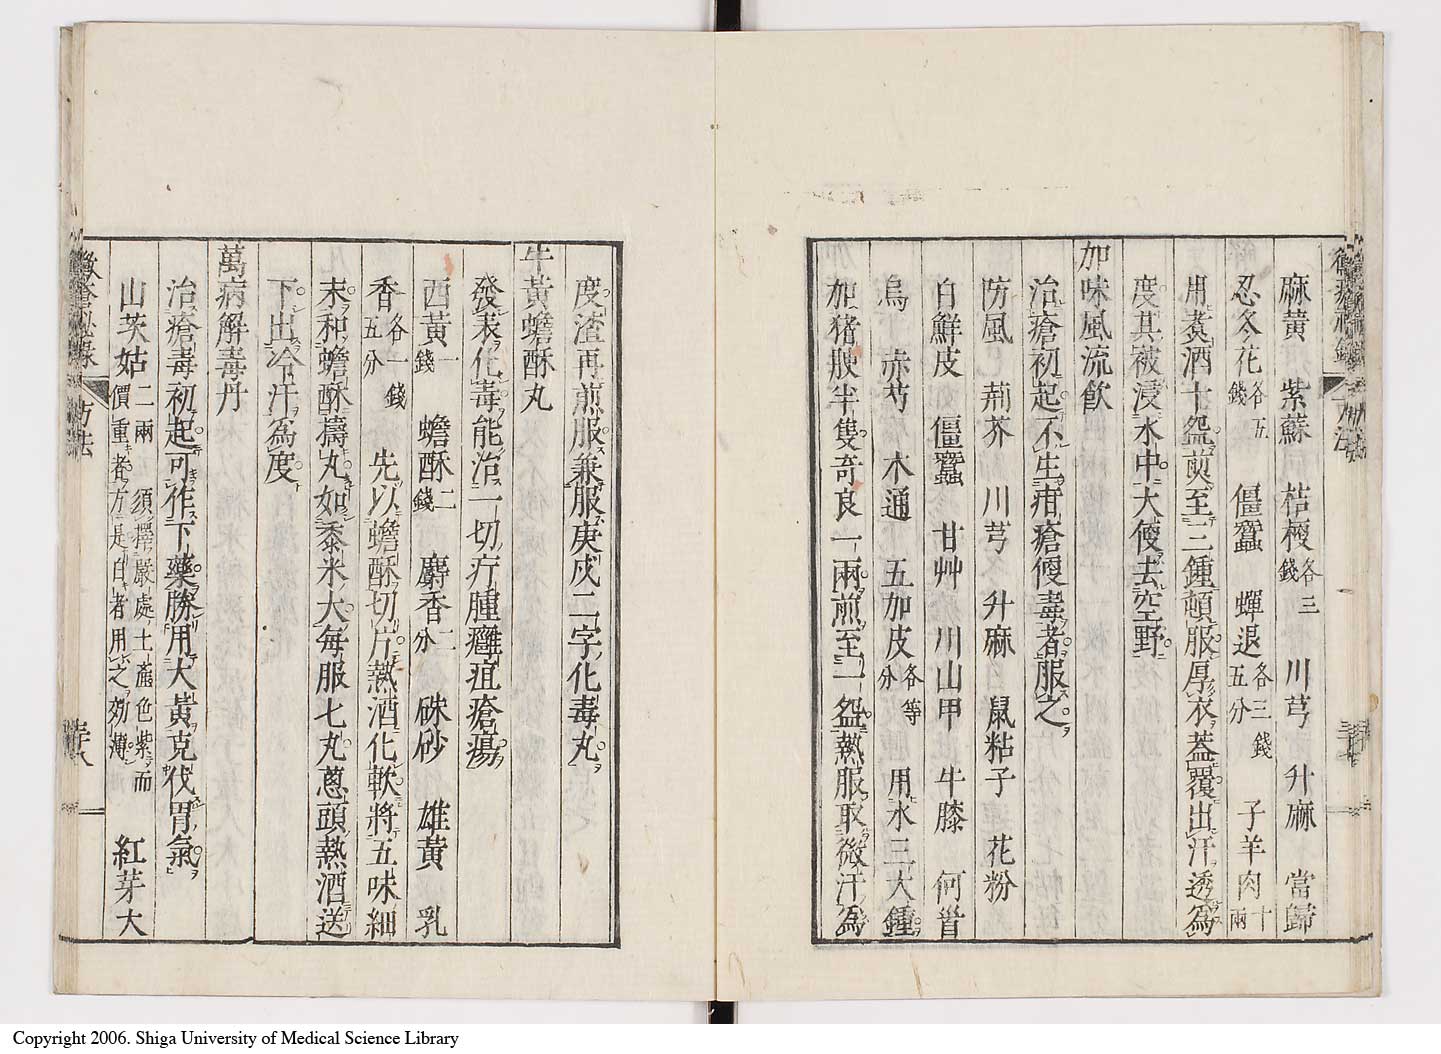 麻黄 紫蘇 桔梗各三錢 川芎 升麻 當歸
忍冬花各五錢 僵蠶 蟬退各三錢五分 子羊肉十兩
用煑酒十盌煎至三鍾頓服厚衣蓋覆出汗透爲
度其被浸水中大傻去空野
加味風流飲
治瘡初起不生疳瘡便毒者服之
防風 荊芥 川芎 升麻 鼠粘子 花粉
白鮮皮 僵蠶 甘艸 川山甲 牛膝 何首
烏 赤芍 木通 五加皮各等分 用水三大鍾
加猪胰半隻奇良一兩煎至一盌熱服取微汗爲
度渣再煎服兼服庚戍二字化毒丸
牛黃蟾酥丸
發表化毒能治一切疔腫癰疽瘡瘍
西黃一錢 蟾酥二錢 麝香二分 硃砂 雄黃 乳
香各一錢五分 先以蟾酥切片熱酒化軟將五味細
末和蟾酥擣丸如黍米大每服七丸蔥頭熱酒送
下出冷汗為度
萬病解毒丹
治瘡毒初起可作下藥勝用大黃克伐胃氣
山茨姑二兩 須擇嚴處土產色紫而價重者方是白者用之効薄 紅芽大
黴瘡秘錄
方法